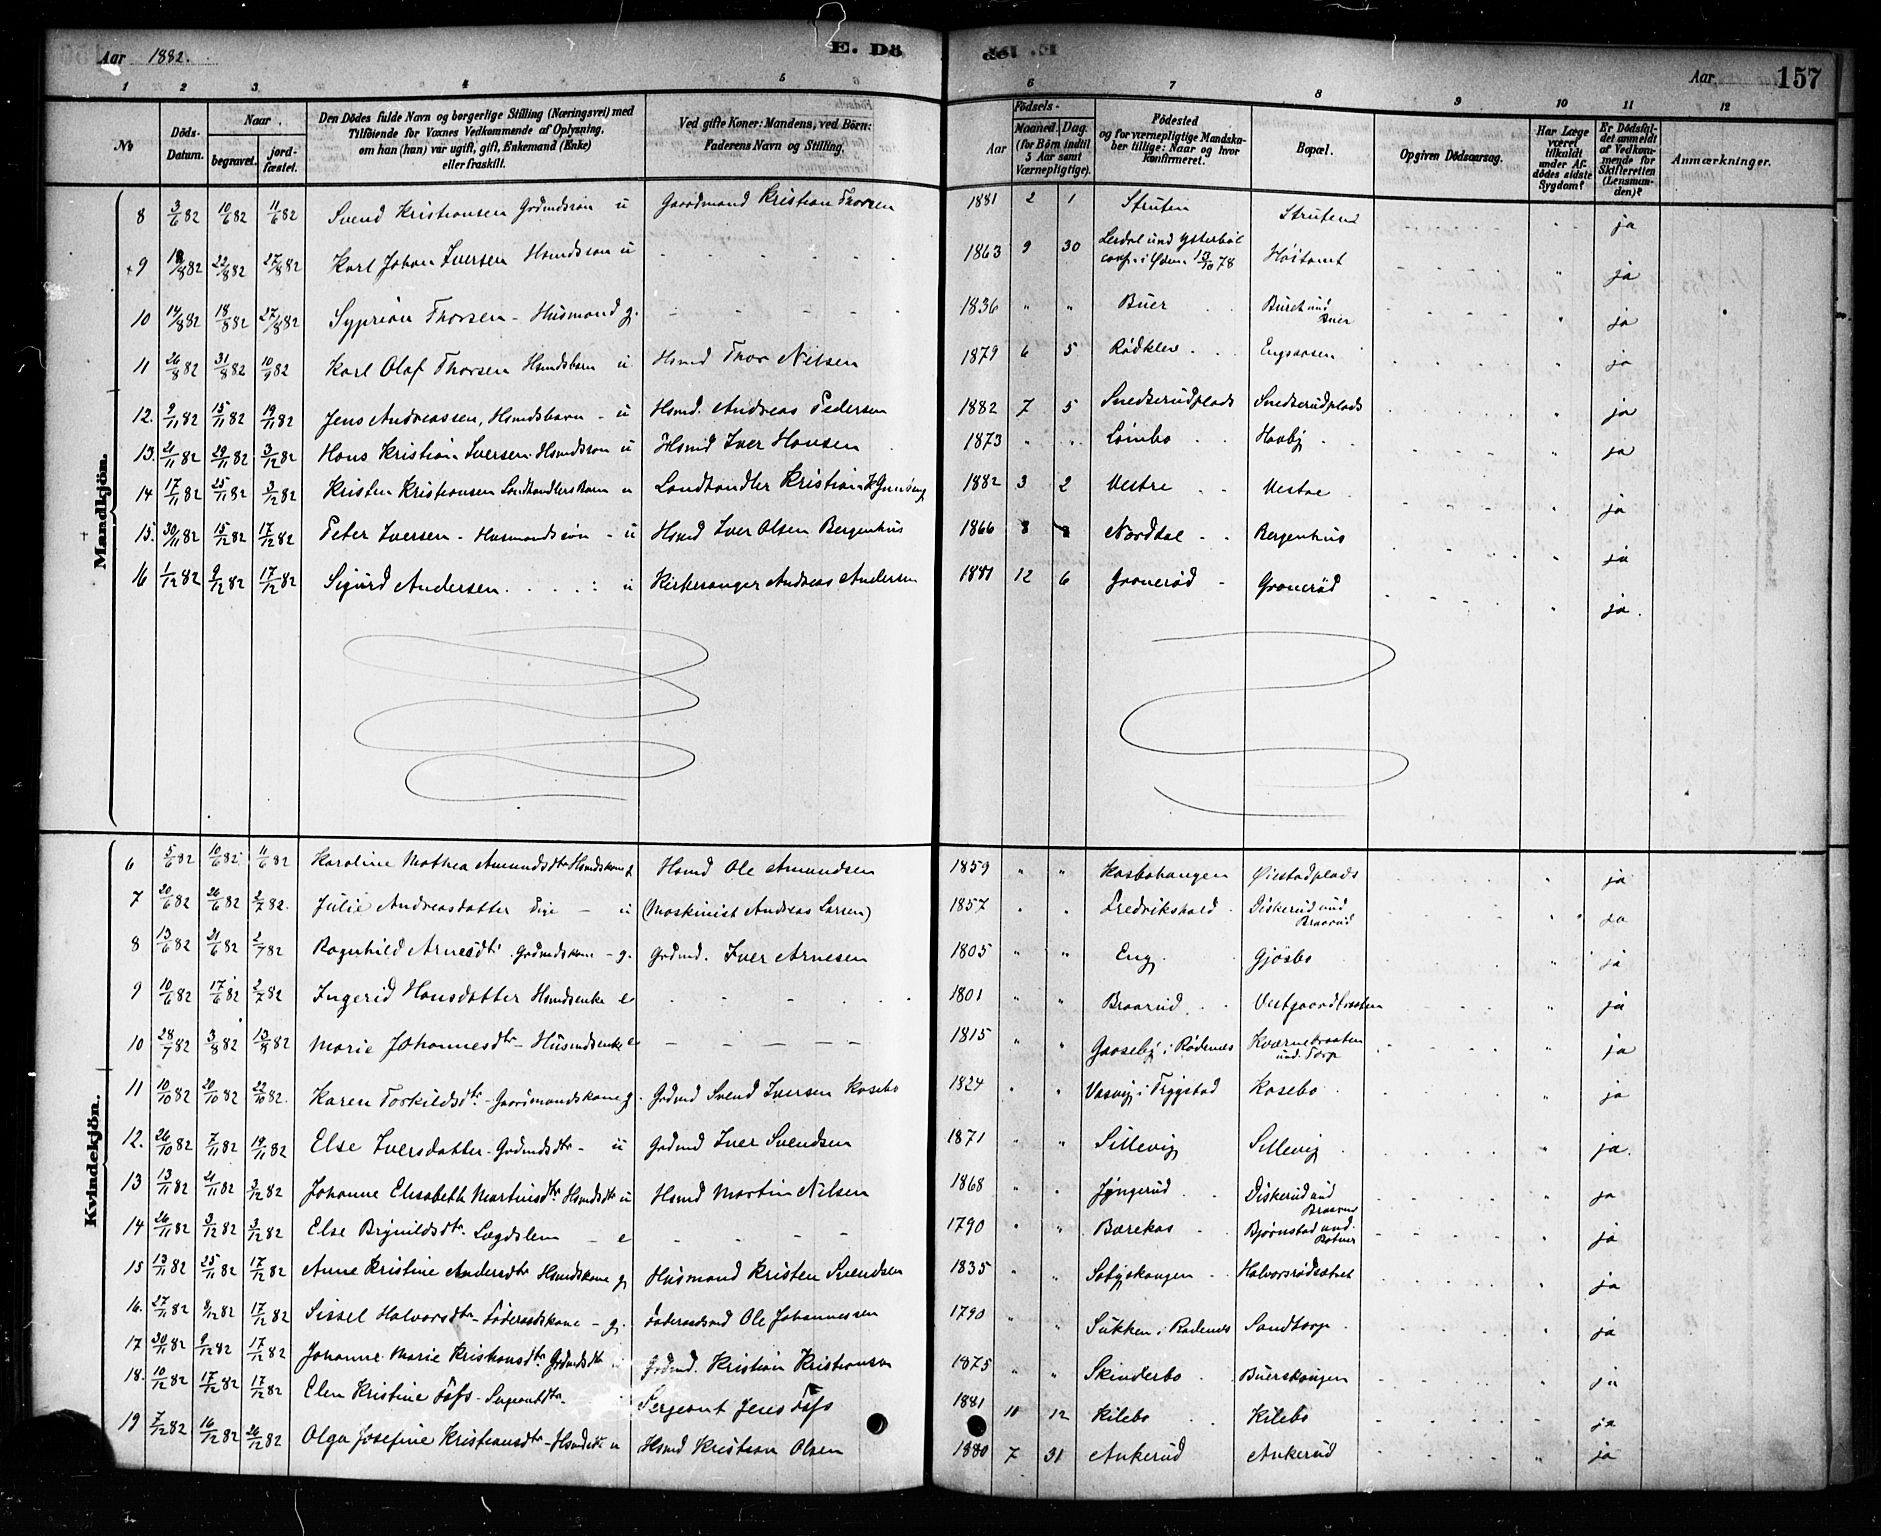 Aar 1882. E. Dö
1 2 3. 4 5
No Döds-Datum. Naar begravet. jordfæstet. Den Dödes fulde Navn og borgerlige Stilling (Næringsvei) med Tilföiende for Voxnes Vedkommende af Oplysning, om han (hun) var ugift, gift, Enkemand (Enke) eller fraskilt. Ved gifte Koner: Mandens, ved Börn: Faderens Navn og Stilling.
Mandkjön.
8 3/6 82 10/6 82 11/6 82 Svend Kristiansen Grdmdssøn u Gaardmand Kristian Thorsen
+9 19/8 82 22/8 82 27/8 82 Karl Johan Iversen Hsmdssøn u
10 14/8 82 18/8 82 27/8 82 Syprian Thorsen - Husmand g.
11 26/8 82 31/8 82 10/9 82 Karl Olaf Thorsen Hsmdsbarn u Hsmd Thor Nilsen
12. 9/11 82 15/11 82 19/11 82 Jens Andreassen, Hsmdsbarn - u Hsmd. Andreas Pedersen
13. 21/11 82 29/11 82 3/12 82 Hans Kristian Iversen Hsmdssøn u Hsmd Iver Hansen
14 17/11 82 25/11 82 3/12 82 Kristen Kristiansen Landhandlersbarn u Landhandler Kristian
15. 30/11 82 15/12 82 17/12 82 Peter Iversen - Husmandssøn - u Hsmd Iver Olsen Bergenhus
16 1/12 82 9/12 82 17/12 82 Sigurd Andersen u Kirkesanger Andreas Andersen
Kvindekjön.
6 5/6 82 10/6 82 11/6 82 Karoline Mathea Amundsdtr Hsmdskone g Hsmd Ole Amundsen
7 20/6 82 26/6 82 2/7 82. Julie Andreasdatter Pige - u (Maskinist Andreas Larsen)
8 13/6 82 21/6 82 2/7 82 Ragnhild Arnesdtr. Grdmdskone - g. Grdmd. Iver Arnesen
9 10/6 82 17/6 82 2/7 82 Ingerid Hansdatter Hsmdsenke e
10 28/7 82 3/8 82 13/8 82 Marie Johannesdtr - Husmdsenke e
11 10/10 82 20/10 82 22/10 82. Karen Torkildsdtr. - Gaardmandskone g. Grdmd Svend Iversen Kosebo
12. 26/10 82 7/11 82 19/11 82 Else Iversdatter - Grdmdsdtr - u Grdmd Iver Svendsen
13 13/11 82 21/11 82 3/12 82 Johanne Elisabeth Martinsdtr Hsmdsdtr u Hsmd Martin Nilsen
14 26/11 82 3/12 82 3/12 82 Else Brynildsdtr. Lægdslem - e
15 13/11 82 25/11 82 17/12 82 Anne Kristine Andersdtr Hsmdskone g Husmand Kristen Svendsen
16. 27/11 82 9/12 82 17/12 82 Sissel Halvorsdtr - Føderaadskone - g. Føderaadsmd Ole Johannessen
17 30/11 82 9/12 82 17/12 82 Johanne Marie Kristiansdtr Grdmdsdtr u Grdmd. Kristian Kristiansen
18. 10/12 82 17/12 82 17/12 82 Elen Kristine - Sergeantdtr. Sergeant Jens
19 7/12 82 16/12 82 26/12 82 Olga Josefine Kristiansdtr - Hsmdsdtr u Hsmd Kristian Olsen
Aar 157
6 7 8 9 10 11 12
Aar Födsels- Maaned. Dag. (for Börn indtil 5 Aar samt Værnepligtige). Födested og for værnepligtige Mandskaber tillige: Naar og hvor konfirmeret. Bopæl. Opgiven Dödsaarsag. Har Læge været tilkaldt under Afdödes sidste Sygdom? Er Dödsfaldet anmeldt af Vedkommende for Skifteretten (Lensmanden)? Anmærkninger.
1881 2 1 Struten Struten ja
1863 9 30 Lerdal und Ysterbøl conf. i 13/10 78 Høitomt ja
1836 " " Buer und Buer " ja
1879 6 5 Rødklev Engaasen " ja
1882 7 5 Snedserudplads Snedserudplads " ja
1873 " " Lømbo Haaby " ja
1882 3 2 Vestre Vestre " ja
1866 8 Nordtal Bergenhus " ja
1881 12 6 Gronerød Gronerød " ja.
1859 " " Kasbohaugen Øiestadplads " ja
1857 " " Fredrikshald Diskerud und Braarud " ja
1805 " " Eng Gjøsbo " ja
1801 " " Braarud Vestgaardbraaten " ja
1815 " " Gaaseby i Rødenes Kværnebraaten und. Torp " ja
1824 " " Vasvig i Trygstad Kosebo " ja
1871 " " Sillevig Sillevig " ja.
1868 " " Jyngerud Diskerud und Braarud " ja
1790 " " Barekas Bjørnstad und. " ja
1835 " " Halvorsrødsætret ja
1790 " " Sukken i Rødenes Sandtorp " ja
1875 " " Skinderbo Buerskogen " ja
1881 10 12 Kilebo Kilebo " ja
1880 7 31 Ankerud Ankerud " ja